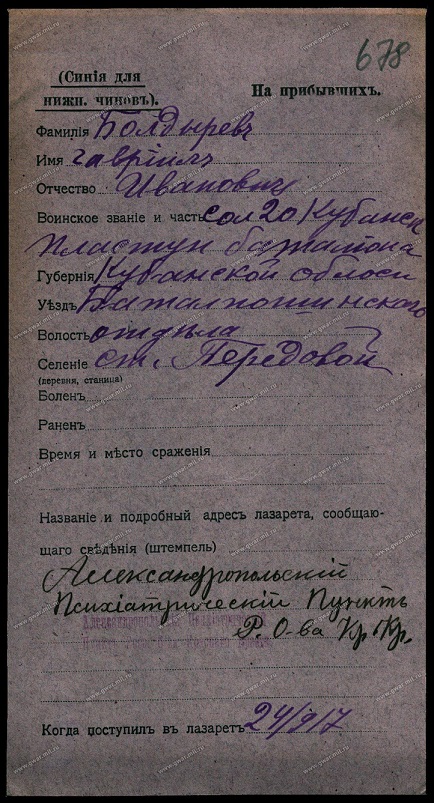 678
(Синія для
нижн. чиновъ).
На прибывшихъ.
Фамилія Болдыревъ
Имя Гавріилъ
Отчество Ивановичъ
Воинское званіе и часть сол 20 Кубанск
Пластун баталіона
Губернія Кубанской области
Уѣздъ Баталпашинскаго
Волость отдѣла
Селеніе ст. Передовой
(деревня, станица)
Боленъ
Раненъ
Время и мѣсто сраженія
Названіе и подробный адресъ лазарета, сообщаю-
щаго свѣдѣнія (штемпель)
Александропольскій
Психіатрическій Пунктъ
Р. О-ва Кр. Кр.
Когда поступилъ въ лазаретъ 24/9/17